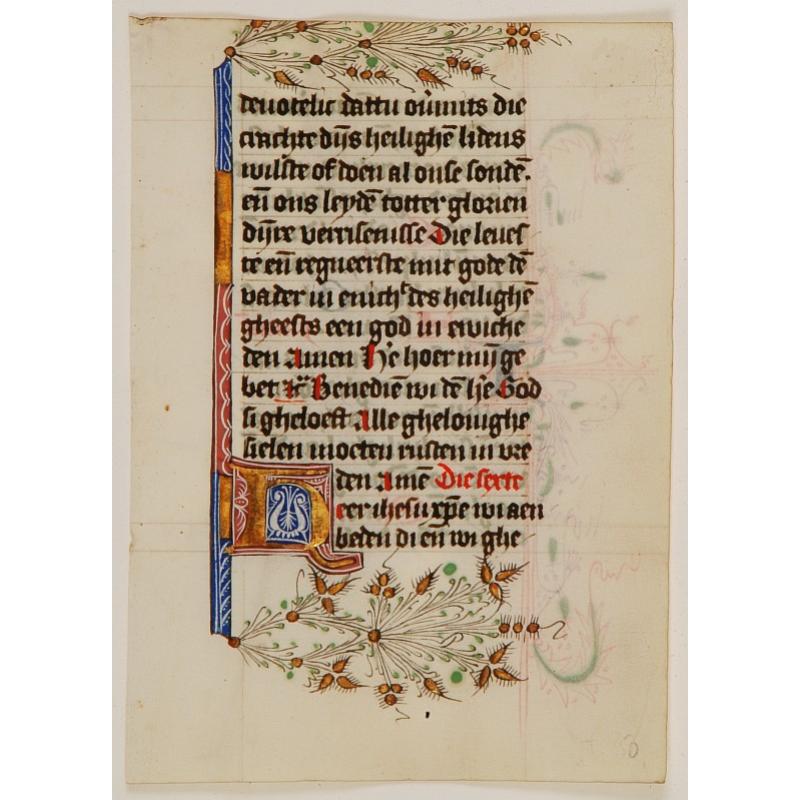 devotelic dattu ov̄mits die
crachte dijns heilighē lidens
wilste of doen al onse sondē.
eñ ons leydē totter glorien
dijnre verrisenisse Die leves
te eñ regneerste mit gode dē
vader in enich des heilighē
gheests een god in ewiche
den Amen He hoer mijn ge
bet Benediē wi dē h̄e God
si gheloeft Alle ghelovighe
sielen moeten rusten in vre
den Amē Die sexte
eer ihesu xp̄e wi aen
beden di eñ wi ghe